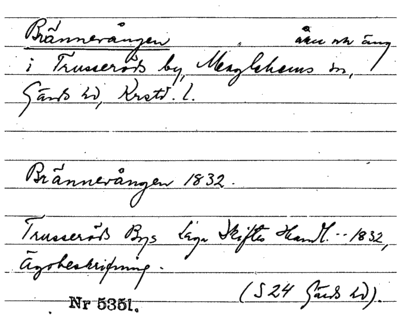 Brännevången åker och äng
i Trusseröds by, Maglehems sn,
Gärds hd, Krstd. l.
Brännevången 1832.
Trusseröds Bys Laga Skiftes Handl. - - 1832,
Ägobeskrifning.
(S 24 Gärds hd).
Nr 5351.